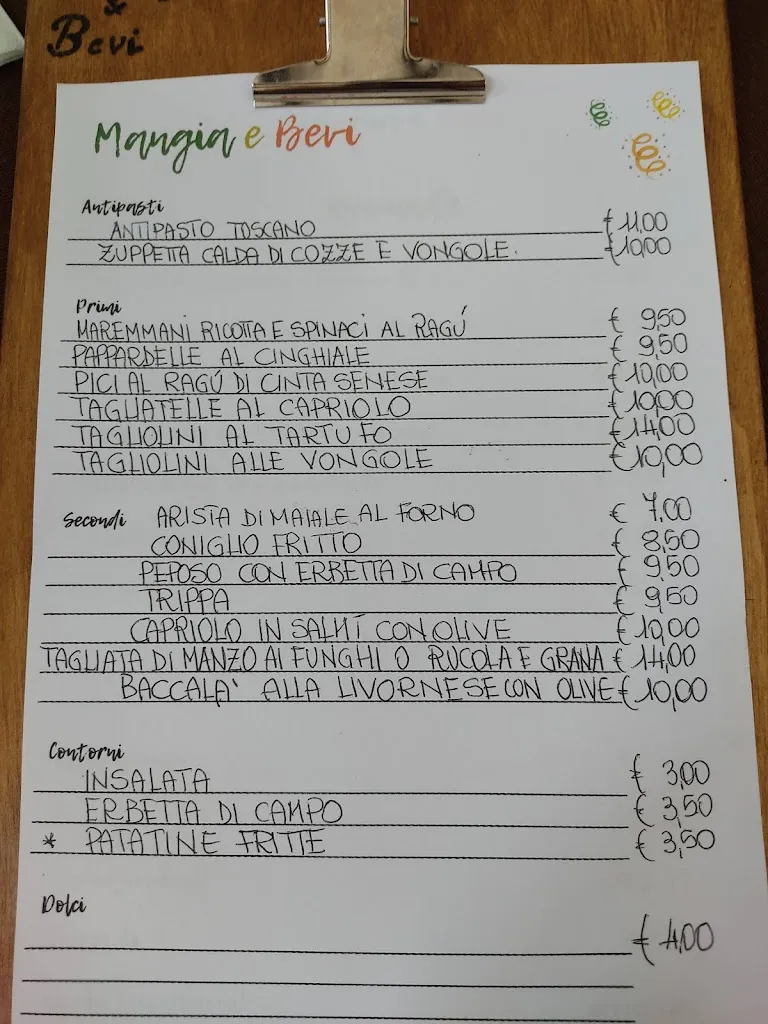 &
Bevi
Mangia e Bevi
Antipasti
ANTIPASTO TOSCANO € 11,00
ZUPPETTA CALDA DI COZZE E VONGOLE. € 10,00
Primi
MAREMMANI RICOTTA E SPINACI AL RAGÚ € 9,50
PAPPARDELLE AL CINGHIALE € 9,50
PICI AL RAGÚ DI CINTA SENESE € 10,00
TAGLIATELLE AL CAPRIOLO € 10,00
TAGLIOLINI AL TARTUFO € 14,00
TAGLIOLINI ALLE VONGOLE € 10,00
Secondi ARISTA DI MAIALE AL FORNO € 7,00
CONIGLIO FRITTO € 8,50
PEPOSO CON ERBETTA DI CAMPO € 9,50
TRIPPA € 9,50
CAPRIOLO IN SALMÍ CON OLIVE € 10,00
TAGLIATA DI MANZO AI FUNGHI O RUCOLA E GRANA € 14,00
BACCALA' ALLA LIVORNESE CON OLIVE € 10,00
Contorni
INSALATA € 3,00
ERBETTA DI CAMPO € 3,50
* PATATINE FRITTE € 3,50
Dolci
€ 4,00